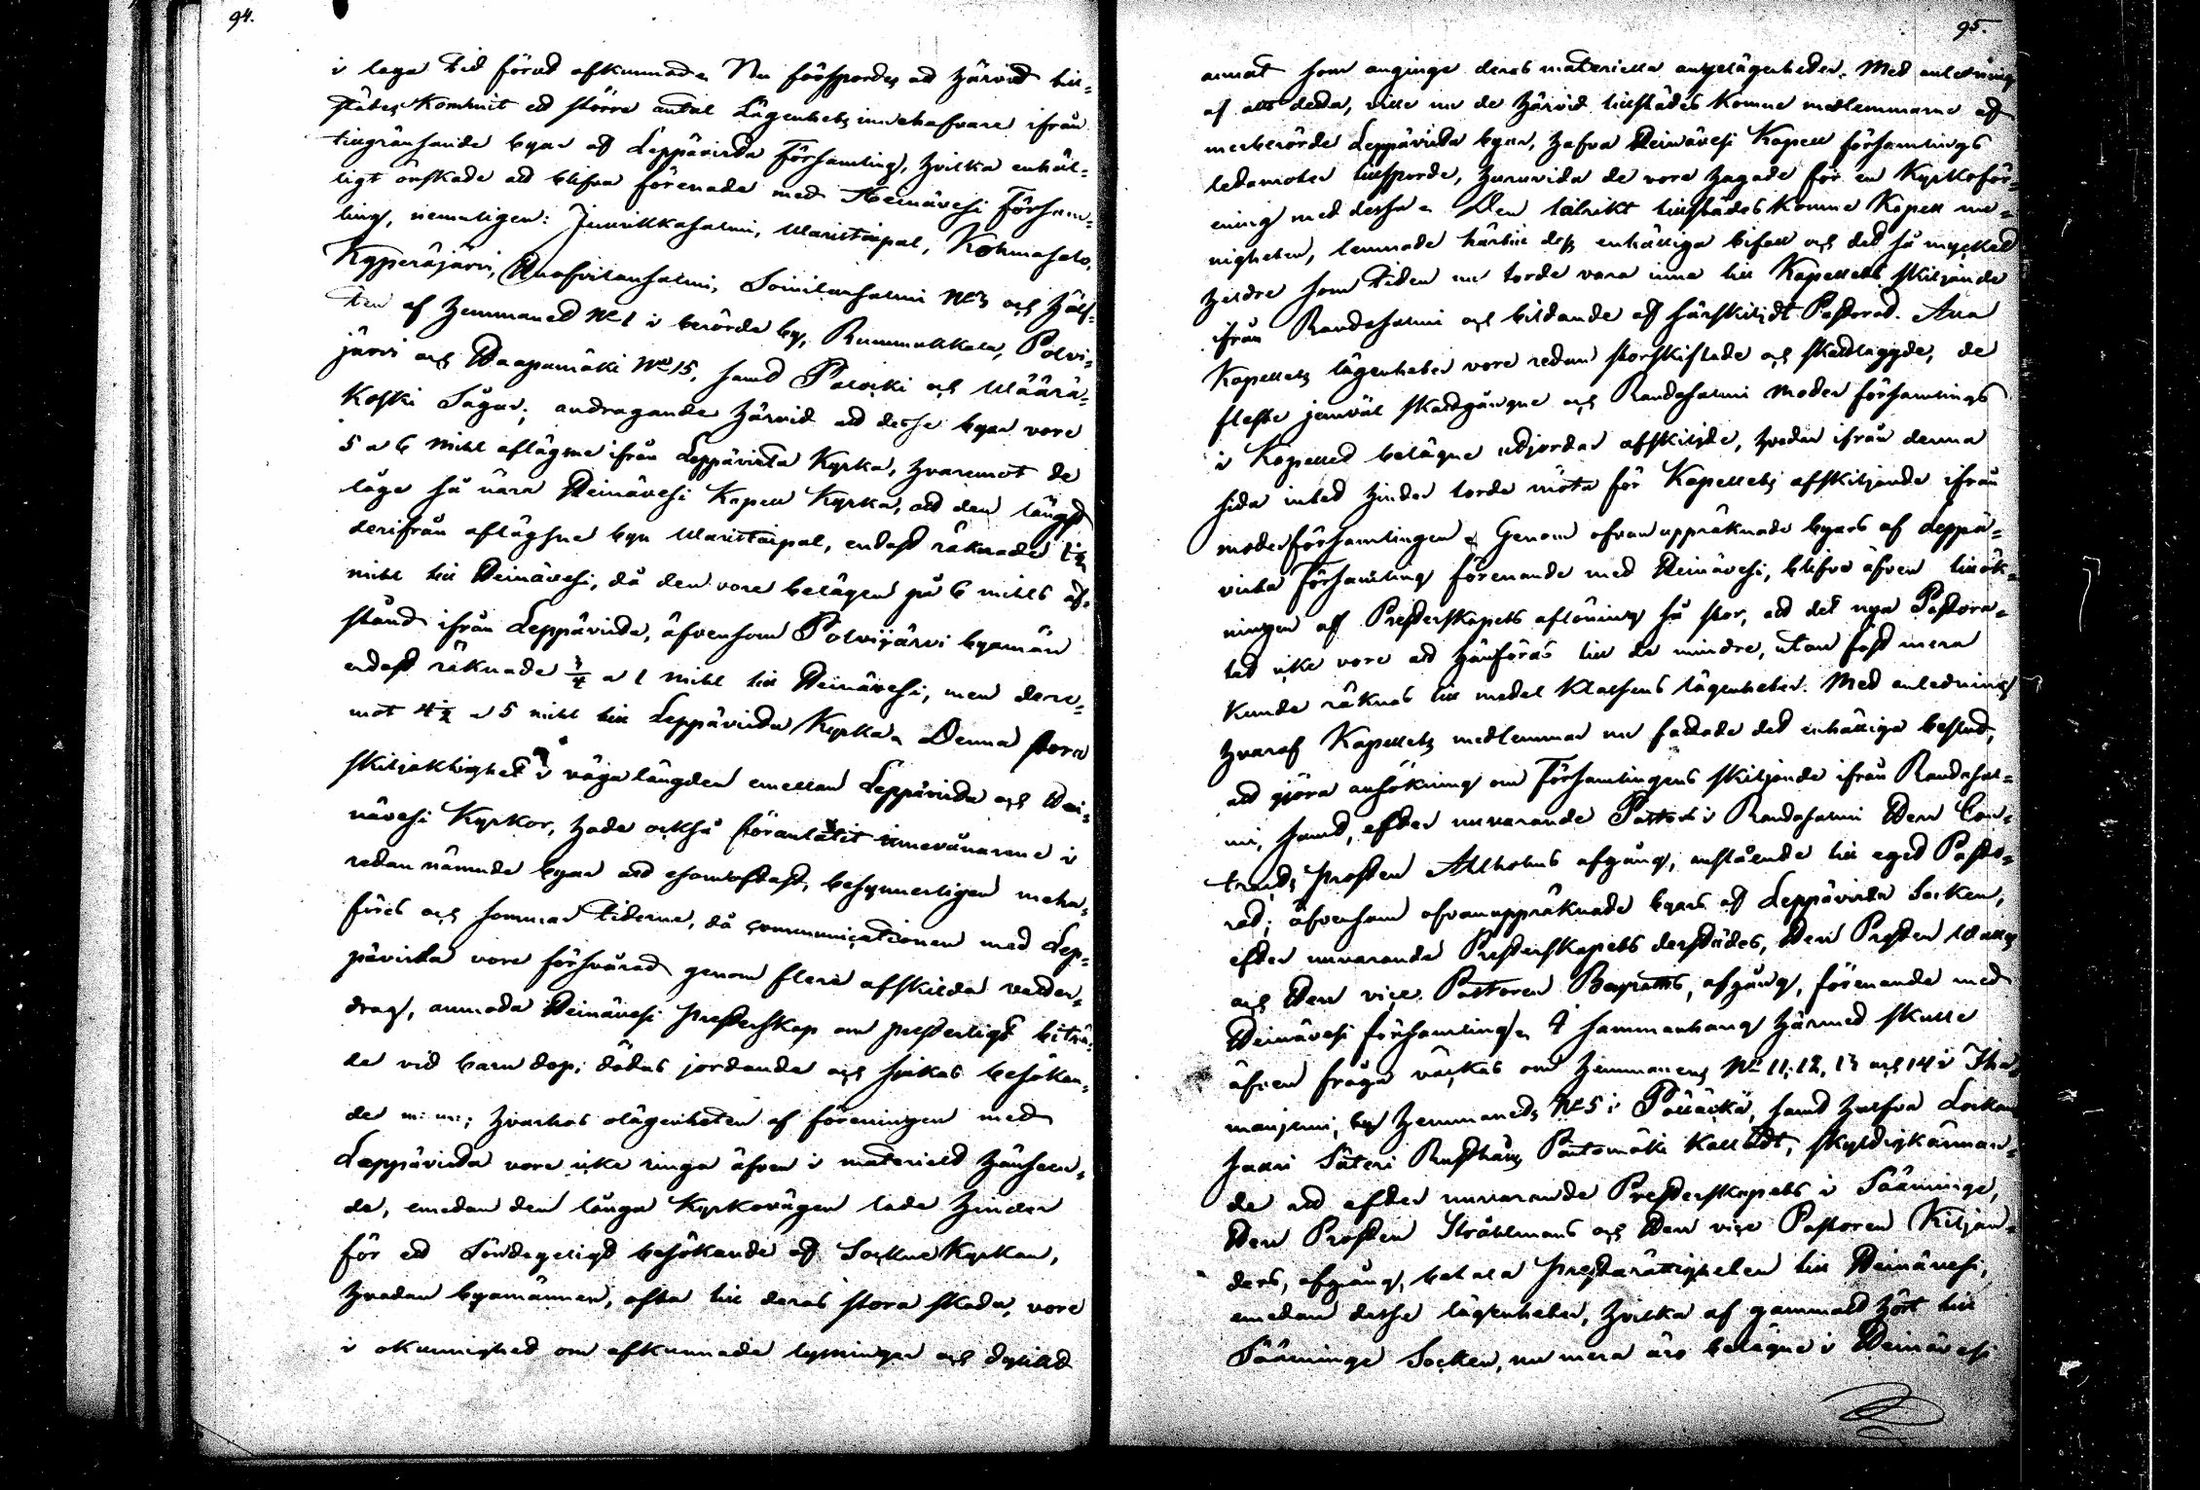 94.
i laga tid förut afkunnade. Nu förspordes att härvid till-
städes kommit ett större antal Lägenhets innehafvare ifrån
tillgränsande byar af Leppävirta Församling, hvilka enhäl-
ligt önskade att blifva förenade med Heinävesi Försam-
ling, nemligen: Jiuvikkasalmi, Waristaipal, Kohmasalo,
Kyperäjärvi, Soinilansalmi No 3 och hälf-
ten af hemmanet No 1 i berörde by, Rummukkala, Polvi-
järvi och Haapamäki No 15, samt Paloiki och Wäärä-
koski Sågar; andragande härvid att desse byar vore
5 a 6 mihl aflägsne ifrån Leppävirta Kyrka, hvaremot de
låge så nära Heinävesi Kapell Kyrka, att den längst
derifrån aflägsne byn Waristaipal, endast räknade 1 1/2
mihl till Heinävesi, då den vore belägen på 6 mihls af-
stånd ifrån Leppävirta, äfvensom Polvijärvi byamän
endast räknade 3/4 a 1 mihl till Heinävesi, men dere-
mot 4 1/2 a 5 mihl till Leppävirta Kyrka. Denna stora
skiljaktighet i väga längden emellan Leppävirta och Hei-
nävesi Kyrkor, hade också föranlåtit innevånarene i
redan nämnde byar att esomoftast, besynnerligen mena-
föres och sommar tiderne, då communicationen med Lep-
pävirta vore försvårad genom flera afskilda vatten-
drag, anmoda Heinävesi Presterskap om presterligt biträ-
de vid barn dop, dödas jordande och sjukas besökan-
de m: m:; hvarhos olägenheten af föreningen med
Leppävirta vore icke ringa äfven i materielt hänseen-
de, emedan den långa Kyrkovägen lade hinder
för ett Söndageligt besökande af Sockne Kyrkan,
hvadan byamännen, ofta till deras stora skada, vore
i okunnighet om afkunnade lysningar och dylikt
95.
annat som anginge deras materiella angelägenheter. Med anledning
af allt detta, ville nu de härvid tillstädes komne medlemmarne af
merberörde Leppävirta byar, hafva Heinävesi Kapell församlings
ledamöter tillsporde, huruvida de vore hugade för en Kyrkoför-
ening med dessa. Den talrikt tillstädes komne Kapell me-
nigheten, lemnade härtill dess enhälliga bifall och det så mycket
heldre som tiden nu torde vara inne till Kapellets skiljande
ifrån Randasalmi och bildande af särskildt Pastorat. Alla
Kapellets lägenheter vore redan storskiftade och skattlaggde, de
flesta jemväl skattgångne och Randasalmi Moder församlings
i Kapellet belägne utjordar afskiljde, hvadan ifrån denna
sida intet hinder torde möta för Kapellets afskiljande ifrån
moderförsamlingen. Genom ofvanuppräknade byars af Leppä-
virta Församling förenande med Heinävesi, blifva äfven tillök-
ningen af Presterskapets aflöning så stor, att det nya Pastora-
tet icke vore att hänföras till de mindre, utan fast mera
kunde räknas till medel Klassens lägenheter. Med anledning
hvaraf Kapellets medlemmar nu fattade det enhälliga beslut,
att göra ansökning om Församlingens skiljande ifrån Randasal-
mi, samt, efter nuvarande Pastorn i Randasalmi Herr Con-
trakts Prosten Alhoms afgång, anslående till eget Pasto-
rat; äfvensom ofvanuppräknade byars af Leppävirta Socken,
efter nuvarande Presterskapets derstädes, Herr Prosten
och Herr vice Pastoren afgång, förenande med
Heinävesi församling. I sammanhang härmed skulle
äfven fråga väckas om hemmanens No 11, 12, 13 och 14 i Iha-
manjemi by hemmanets No 5 i Pölläkkä, samt halfva
saari Säteri Rusthåll, Pöntömäki kalladt, skyldigkännan-
de att efter nuvarande Presterskapets i Sääminge,
Herr Prosten Stråhlmans och Herr vice Pastoren Kiljan-
ders, afgång, betala Presterättigheten till Heinävesi,
emedan dessa lägenheter, hvilka af gammalt hört till
Sääminge Socken, nu mera äro belägne i Heinävesi